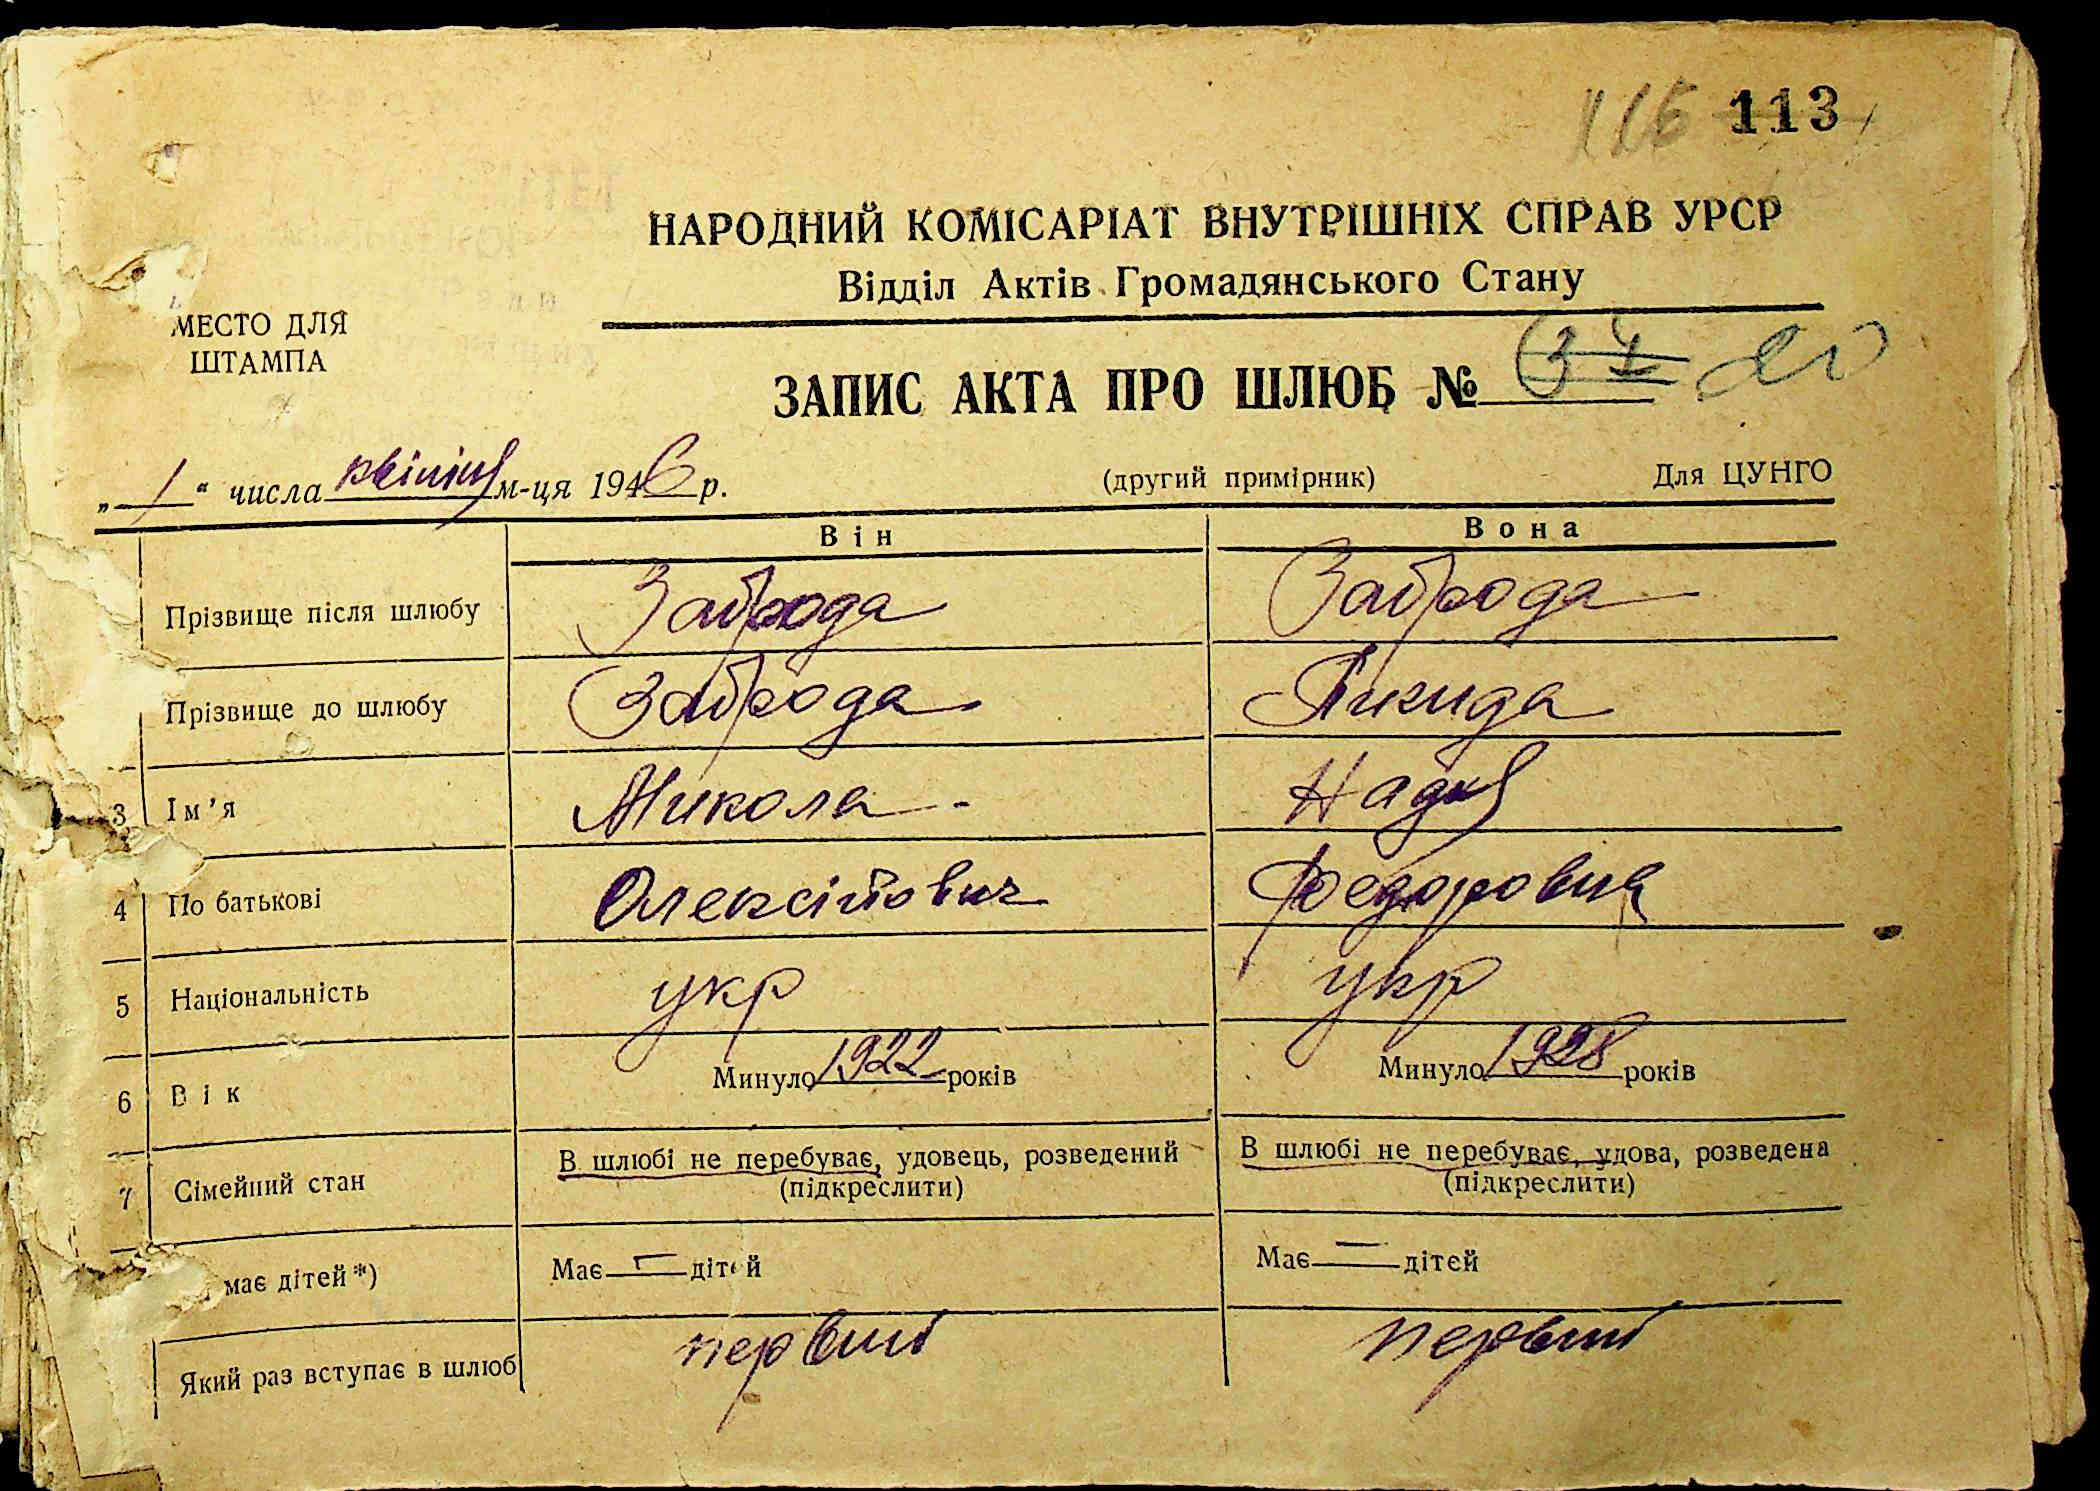 116 113
НАРОДНИЙ КОМІСАРІАТ ВНУТРІШНІХ СПРАВ УРСР
Відділ Актів Громадянського Стану
МЕСТО ДЛЯ
ШТАМПА
ЗАПИС АКТА ПРО ШЛЮБ №
„1“ числа квітня м-ця 1946 р. (другий примірник) Для ЦУНГО
Він Вона
Прізвище після шлюбу Заброда Заброда
Прізвище до шлюбу Заброда
3 Ім'я Микола Надія
4 По батькові Олексійович Федоровна
5 Національність укр укр
6 Вік Минуло 1922 років Минуло 1928 років
7 Сімейний стан В шлюбі не перебуває, удовець, розведений В шлюбі не перебуває, удова, розведена
(підкреслити) (підкреслити)
має дітей*) Має — дітей Має — дітей
Який раз вступає в шлюб первий первий